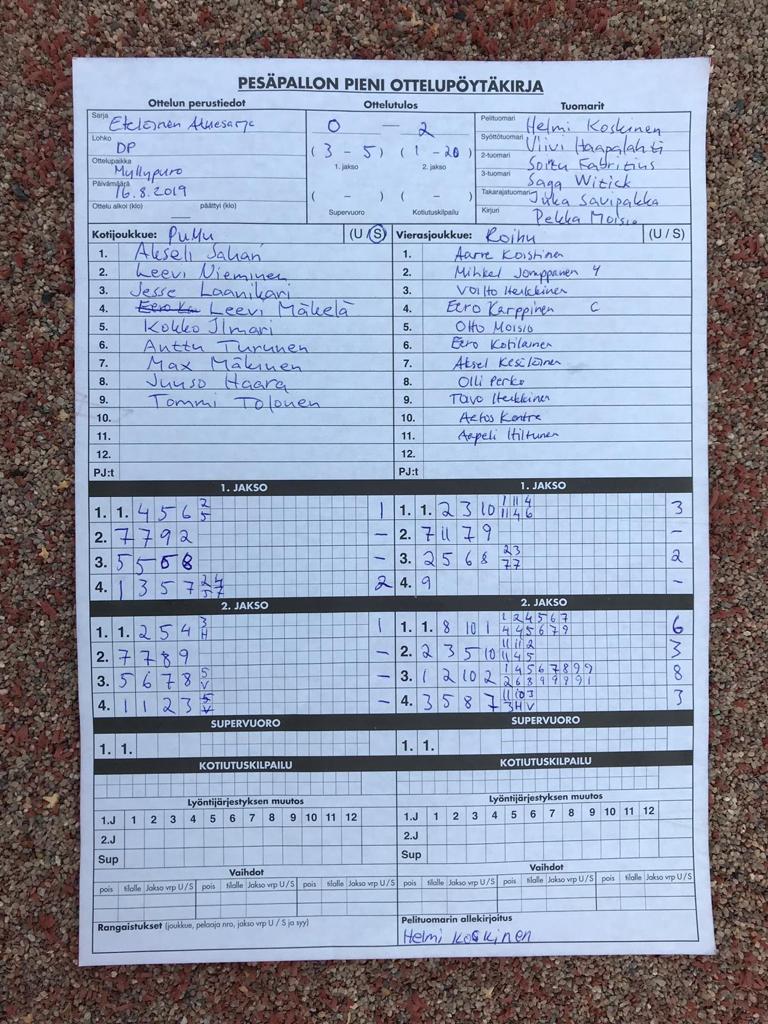 PESÄPALLON PIENI OTTELUPÖYTÄKIRJA
Ottelun perustiedot Ottelutulos Tuomarit
Sarja Eteläinen Aluesarja
Lohko DP
Ottelupaikka Myllypuro
Päivämäärä 16.8.2019
Ottelu alkoi (klo) päättyi (klo)
0 — 2
(3 - 5) (1 - 20)
1. jakso 2. jakso
( - ) ( - )
Supervuoro Kotiutuskilpailu
Pelituomari Helmi Koskinen
Syöttötuomari Viivi Haapalahti
2-tuomari Soitu Fabritius
3-tuomari Saga Witick
Takarajatuomari Juka Savipakka
Kirjuri Pekka Moisio
Kotijoukkue: PuMu (U / S) Vierasjoukkue: Roihu (U / S)
1. Akseli Sahari 1. Aarre Koistinen
2. Leevi Nieminen 2. Mihkel Jomppanen Y
3. Jesse Laanikari 3. Voitto Heikkinen
4. Leevi Mäkelä 4. Eero Karppinen C
5. Kokko Ilmari 5. Otto Moisio
6. Anttu Turunen 6. Eero Kotilainen
7. Max Mäkinen 7. Aksel Kesäläinen
8. Juuso Haara 8. Olli Perko
9. Tommi Tolonen 9. Toivo Heikkinen
10. 10. Aatos Kontra
11. 11. Aapeli Hiltunen
12. 12.
PJ:t PJ:t
1. JAKSO 1. JAKSO
1. 1. 4 5 6 2 5 1 1. 1. 2 3 10 1 11 4 11 4 6 3
2. 7 7 9 2 - 2. 7 11 7 9 -
3. 5 5 6 8 - 3. 2 5 6 8 2 3 7 7 2
4. 1 3 5 7 2 4 5 7 2 4. 9 -
2. JAKSO 2. JAKSO
1. 1. 2 5 4 3 H 1 1. 1. 8 10 1 1 2 4 5 6 7 4 4 5 6 7 9 6
2. 7 7 8 9 - 2. 2 3 5 10 11 11 2 11 4 5 3
3. 5 6 7 8 5 V - 3. 1 2 10 2 1 4 5 6 7 8 9 9 2 6 8 9 9 9 9 1 8
4. 1 1 2 3 5 V - 4. 3 5 8 7 11 10 3 3 H V 3
SUPERVUORO SUPERVUORO
1. 1. 1. 1.
KOTIUTUSKILPAILU KOTIUTUSKILPAILU
Lyöntijärjestyksen muutos Lyöntijärjestyksen muutos
1.J 1 2 3 4 5 6 7 8 9 10 11 12 1.J 1 2 3 4 5 6 7 8 9 10 11 12
2.J 2.J
Sup Sup
Vaihdot Vaihdot
pois tilalle Jakso vrp U/S pois tilalle Jakso vrp U/S pois tilalle Jakso vrp U/S pois tilalle Jakso vrp U/S pois tilalle Jakso vrp U/S pois tilalle Jakso vrp U/S
Rangaistukset (joukkue, pelaaja nro, jakso vrp U / S ja syy) Pelituomarin allekirjoitus
Helmi Koskinen